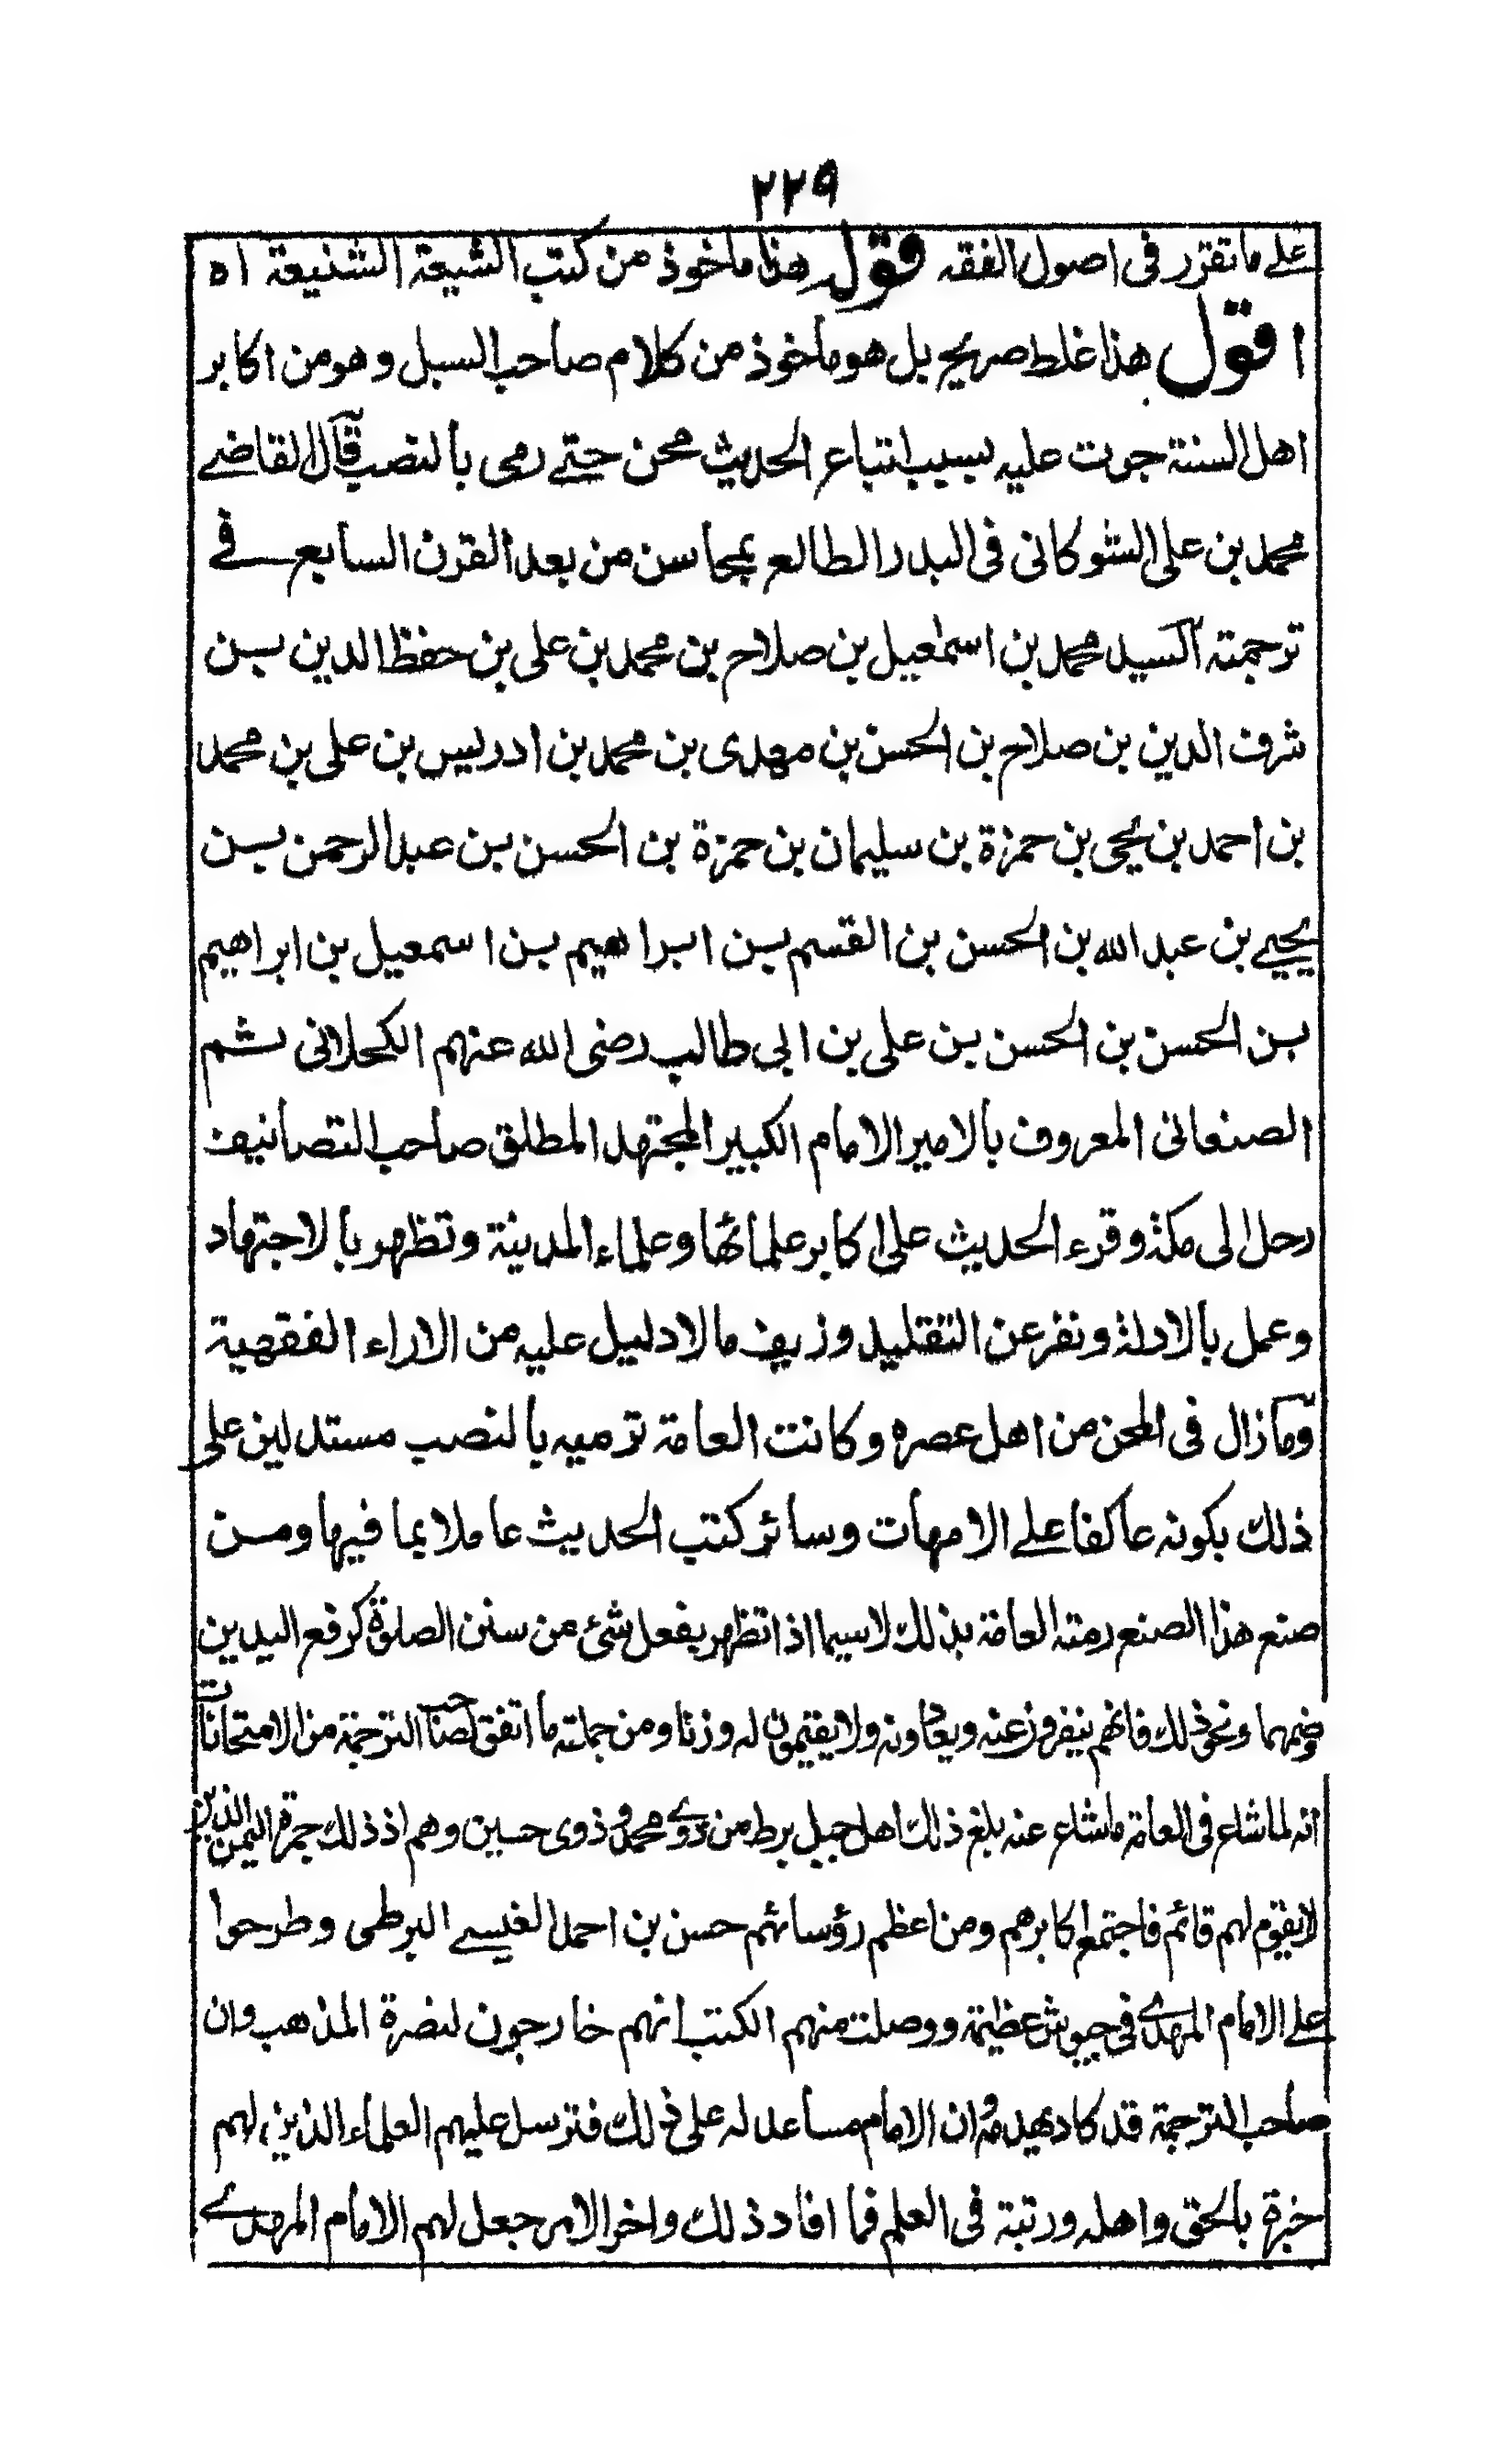 ٢٢٩
على ما تقرر فى اصول الفقه قوله هذا ماخوذ من كتب الشيعة الشنيعة اه
اقول هذا غلط صريح بل هو ماخوذ من كلام صاحب السبل وهو من اكابر
اهل السنة جرت عليه بسبب اتباع الحديث محن حتى رمى بالنصب قال القاضى
محمد بن على الشوكانى فى البدر الطالع بمحاسن من بعد القرن السابع فى
ترجمته السيد محمد بن اسمعيل بن صلاح بن محمد بن على بن حفظ الدين بن
شرف الدين بن صلاح بن الحسن بن مهدى بن محمد بن ادريس بن على بن محمد
بن احمد بن يحيى بن حمزة بن سليمان بن حمزة بن الحسن بن عبد الرحمن بن
يحيى بن عبد الله بن الحسن بن القسم بن ابراهيم بن اسمعيل بن ابراهيم
بن الحسن بن الحسن بن على بن ابى طالب رضى الله عنهم الكحلانى ثم
الصنعانى المعروف بالامير الامام الكبير المجتهد المطلق صاحب التصانيف
رحل الى مكة وقرء الحديث على اكابر علمائها وعلماء المدينة وتظهر بالاجتهاد
وعمل بالادلة ونفر عن التقليد وزيف ما لا دليل عليه من الاراء الفقهية
وما زال فى المحن من اهل عصره وكانت العامة ترميه بالنصب مستدلين على
ذلك بكونه عاكفا على الامهات وسائر كتب الحديث عاملا بما فيها ومن
صنع هذا الصنع رمته العامة بذلك لا سيما اذا تظهر بفعل شئ من سنن الصلوة كرفع اليدين
وضمهما ونحو ذلك فانهم ينفرون عنه ويعادونه ولا يقيمون له وزنا ومن جملة ما اتفق لصاحب الترجمة من الامتحانات
انه لما شاع فى العامة ما شاع عنه بلغ ذلك اهل جبل برط من ذوى محمد وذوى حسين وهم اذ ذلك جمرة اليمن الذين
لا يقوم لهم قائم فاجتمع اكابرهم ومن اعظم رؤسائهم حسن بن احمد العنيسى البرطى وطرحوا
على الامام المهدى فى جيوش عظيمة ووصلت منهم الكتب انهم خارجون لنصرة المذهب وان
صاحب الترجمة قد كاد يهدمه وان الامام مساعد له على ذلك فترسل عليهم العلماء الذين لهم
خبرة بالحق واهله ورتبة فى العلم فما افاد ذلك واخر الامر جعل لهم الامام المهدى